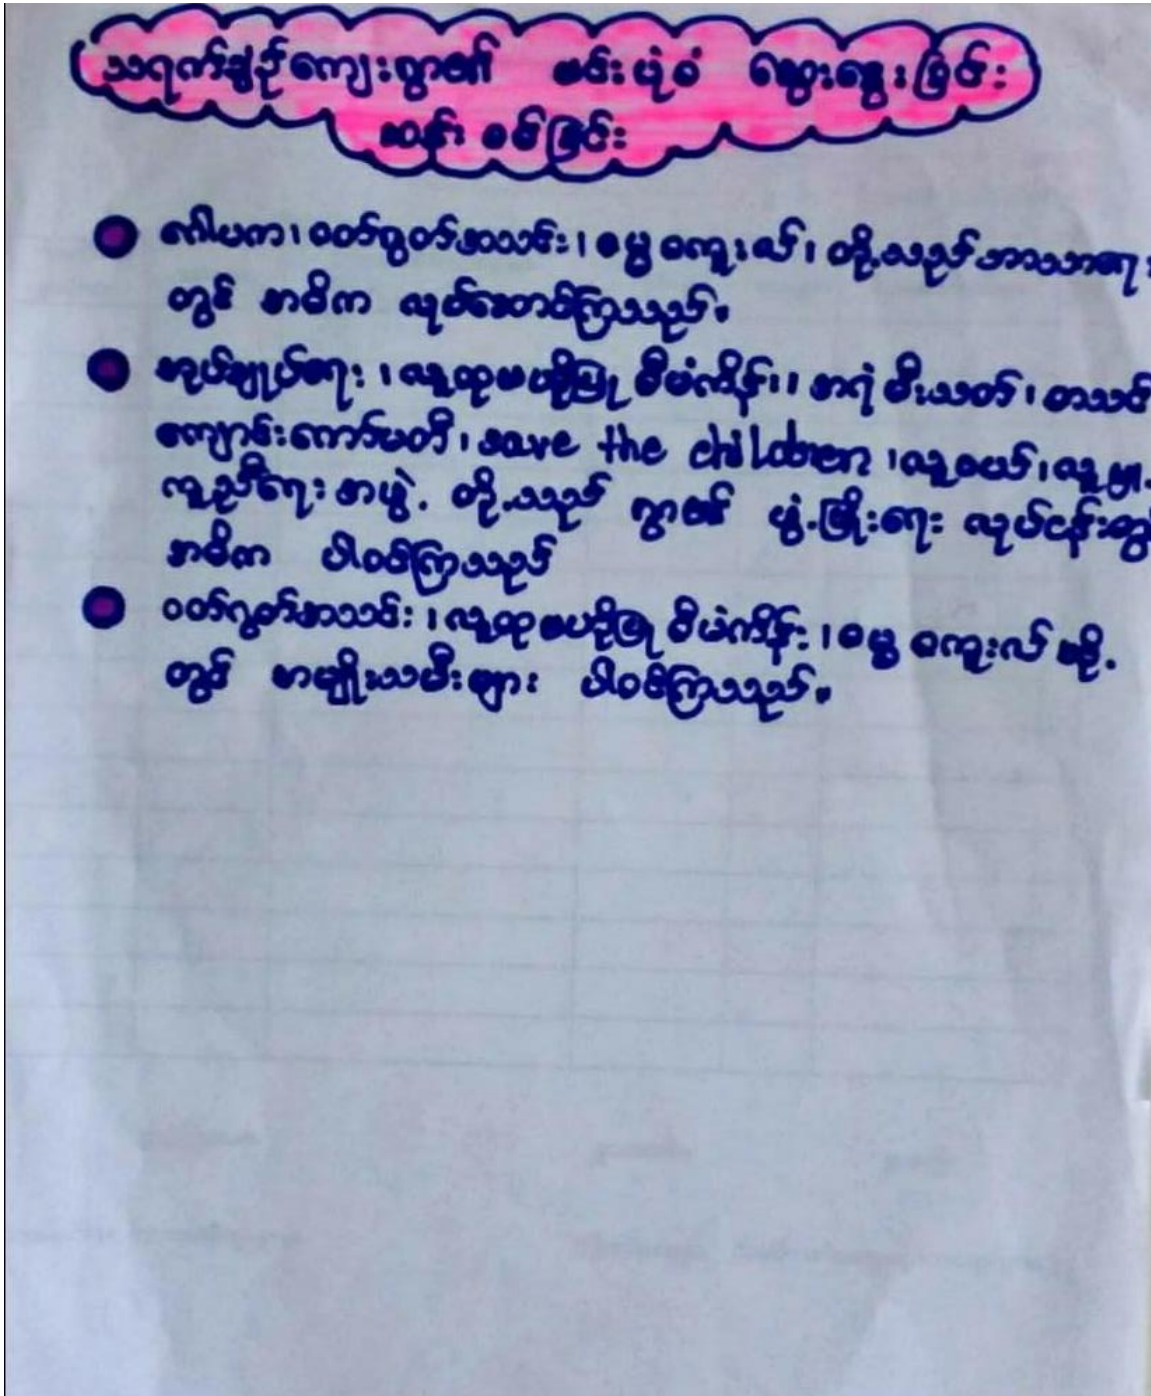 သရက်ချဉ်ကျေးရွာ၏ ဗင်းပုံစံ ဆွေးနွေးခြင်း
ဆန်း စစ်ခြင်း
ဂေါပက၊ ဝတ်ရွတ်အသင်း၊ ဓမ္မ စကူးလ်၊ တို့သည် ဘာသာရေး
တွင် အဓိက လုပ်ဆောင်ကြသည်။
အုပ်ချုပ်ရေး၊ လူထုဗဟိုပြု စီမံကိန်း၊ အရံ မီးသတ်၊
ကျောင်းကော်မတီ၊ save the children ၊လူငယ်၊လူမှု
ကူညီရေး အဖွဲ့ တို့သည် ရွာ၏ ဖွံ့ဖြိုးရေး လုပ်ငန်းတွင်
အဓိက ပါဝင်ကြသည်
ဝတ်ရွတ်အသင်း၊ လူထုဗဟိုပြု စီမံကိန်း၊ ဓမ္မ စကူးလ် တို့
တွင် အမျိုးသမီးများ ပါဝင်ကြသည်။